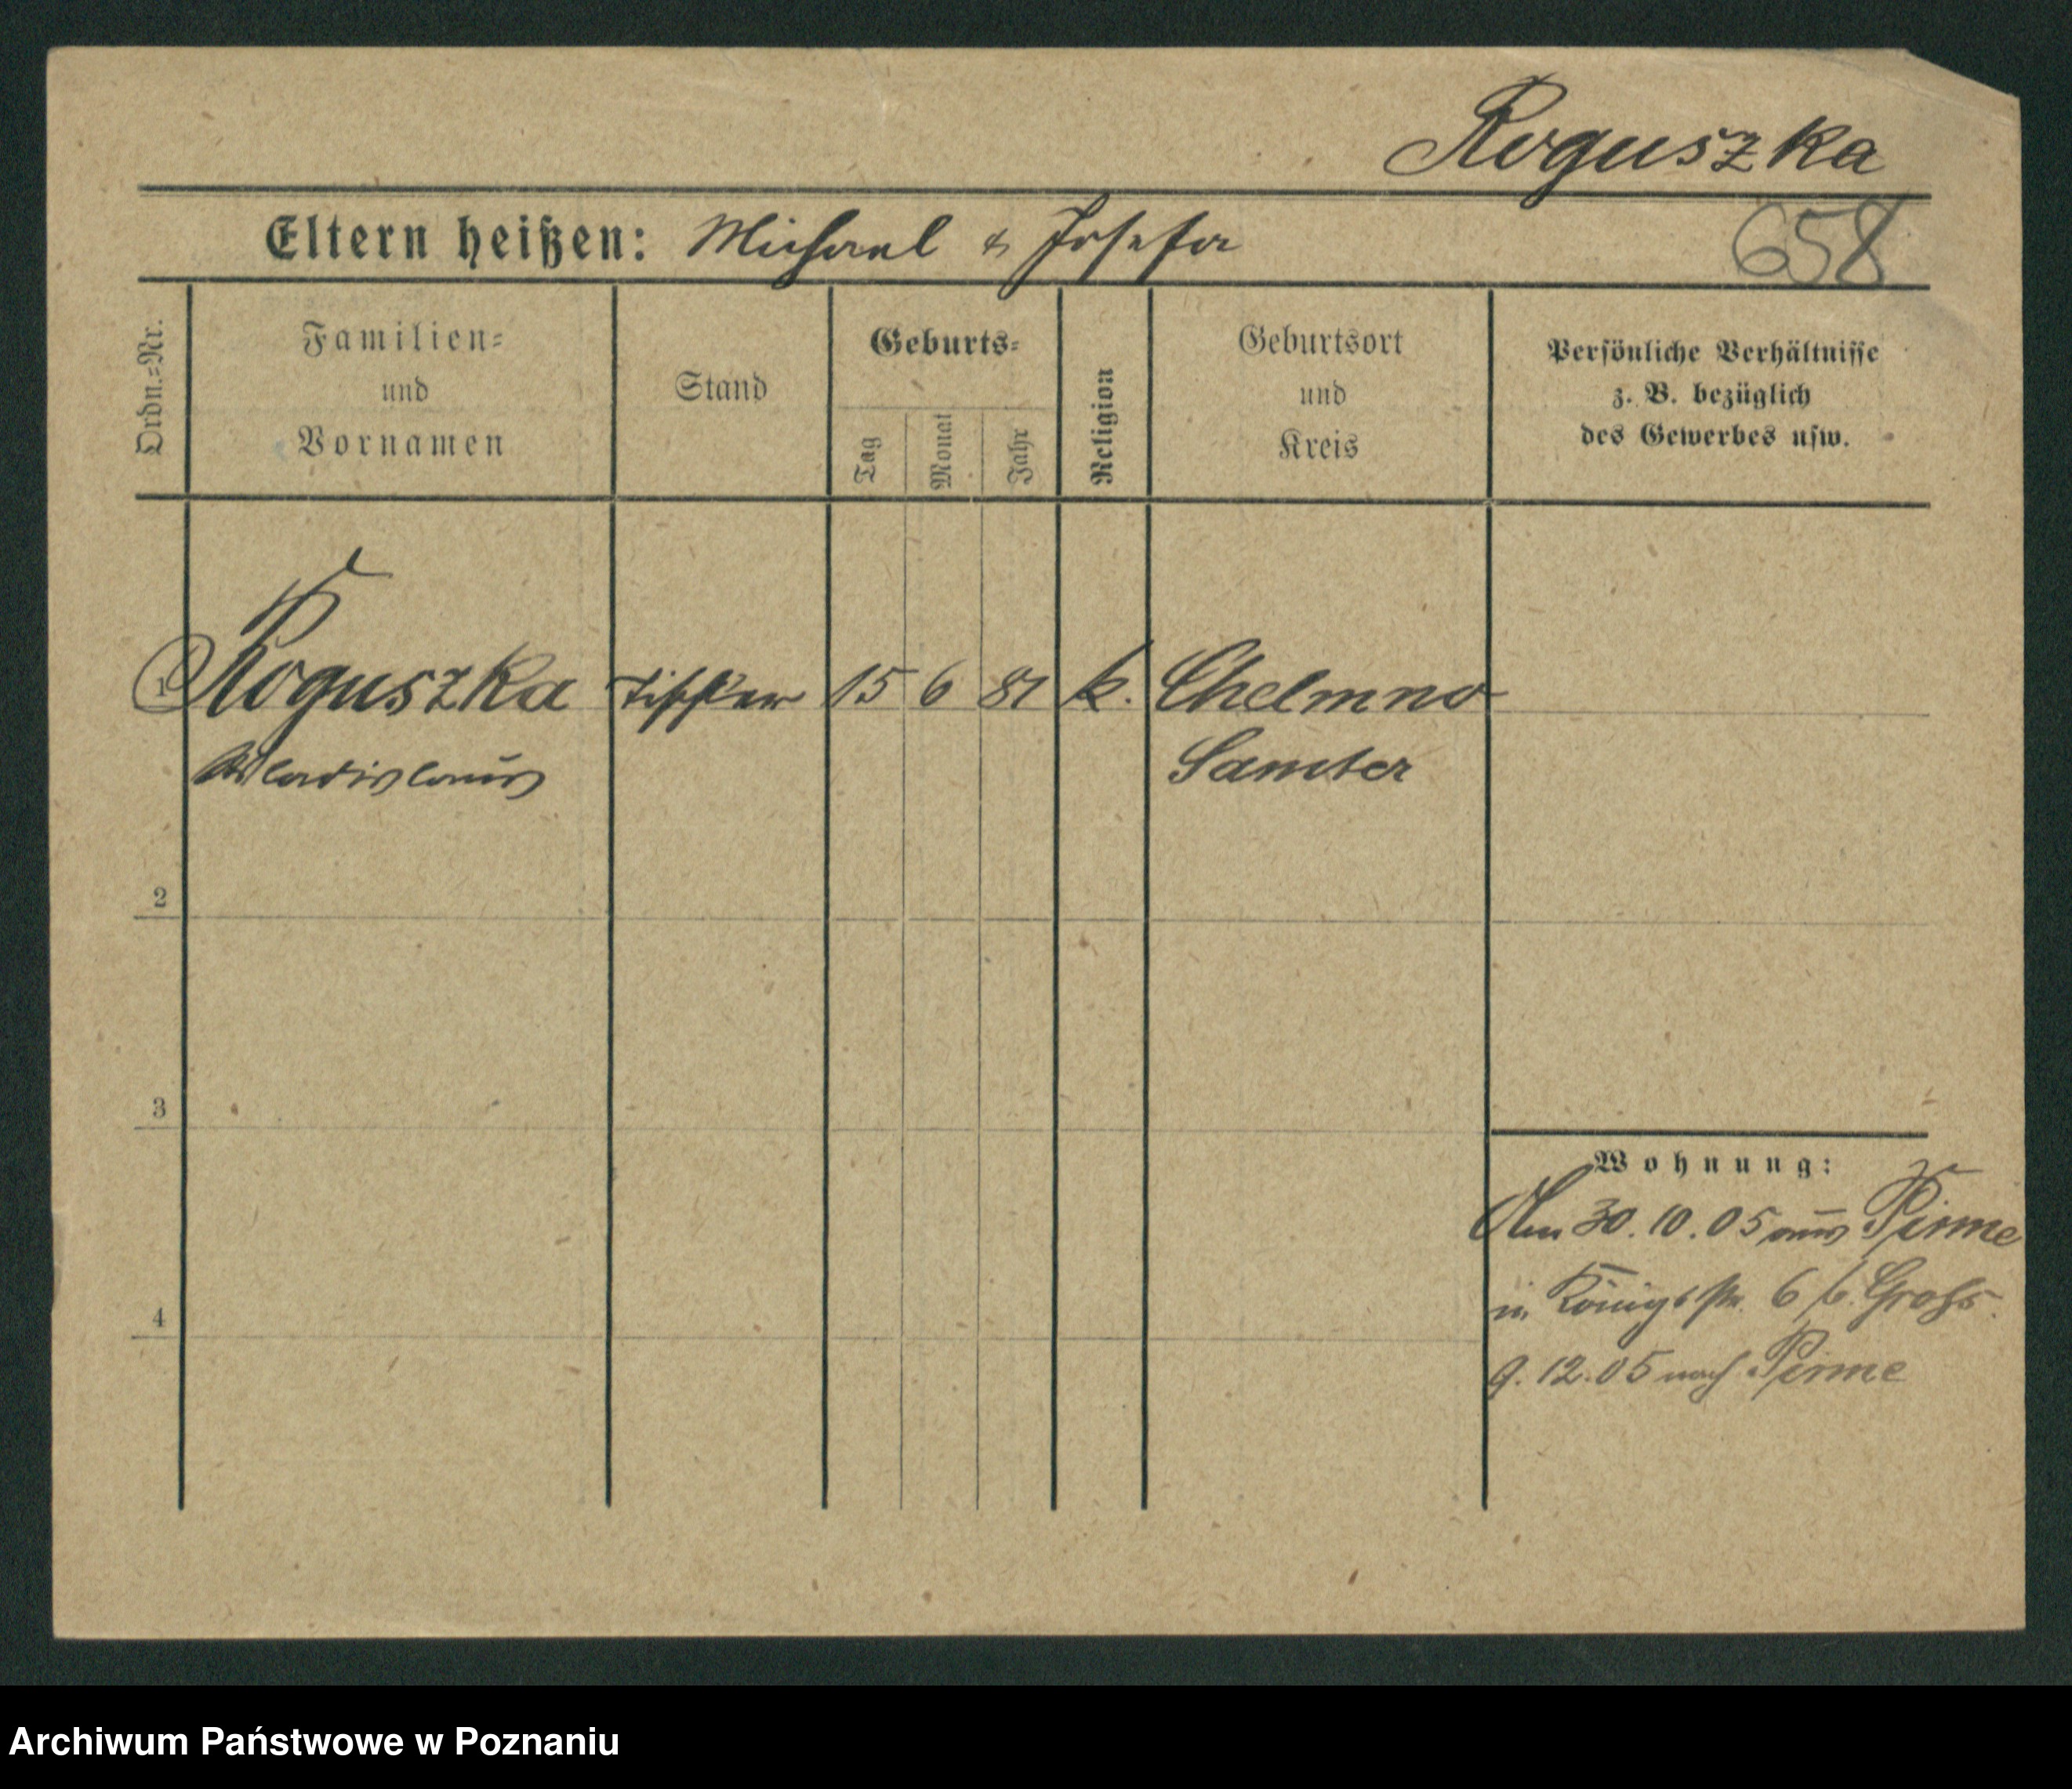 Roguszka
Eltern heißen: Michael & Josefa
658
Ordn.=Nr.
Familien=
und
Vornamen
Stand
Geburts=
Tag
Monat
Jahr
Religion
Geburtsort
und
Kreis
Persönliche Verhältnisse
z. B. bezüglich
des Gewerbes usw.
1 Roguszka Tischler 15 6 81 k. Chelmno
Wladislaus Samter
2
3
4
Wohnung:
Am 30.10.05 aus Pinne
in Königstr. 6 b. Grohs.
9.12.05 nach Pinne
Archiwum Państwowe w Poznaniu